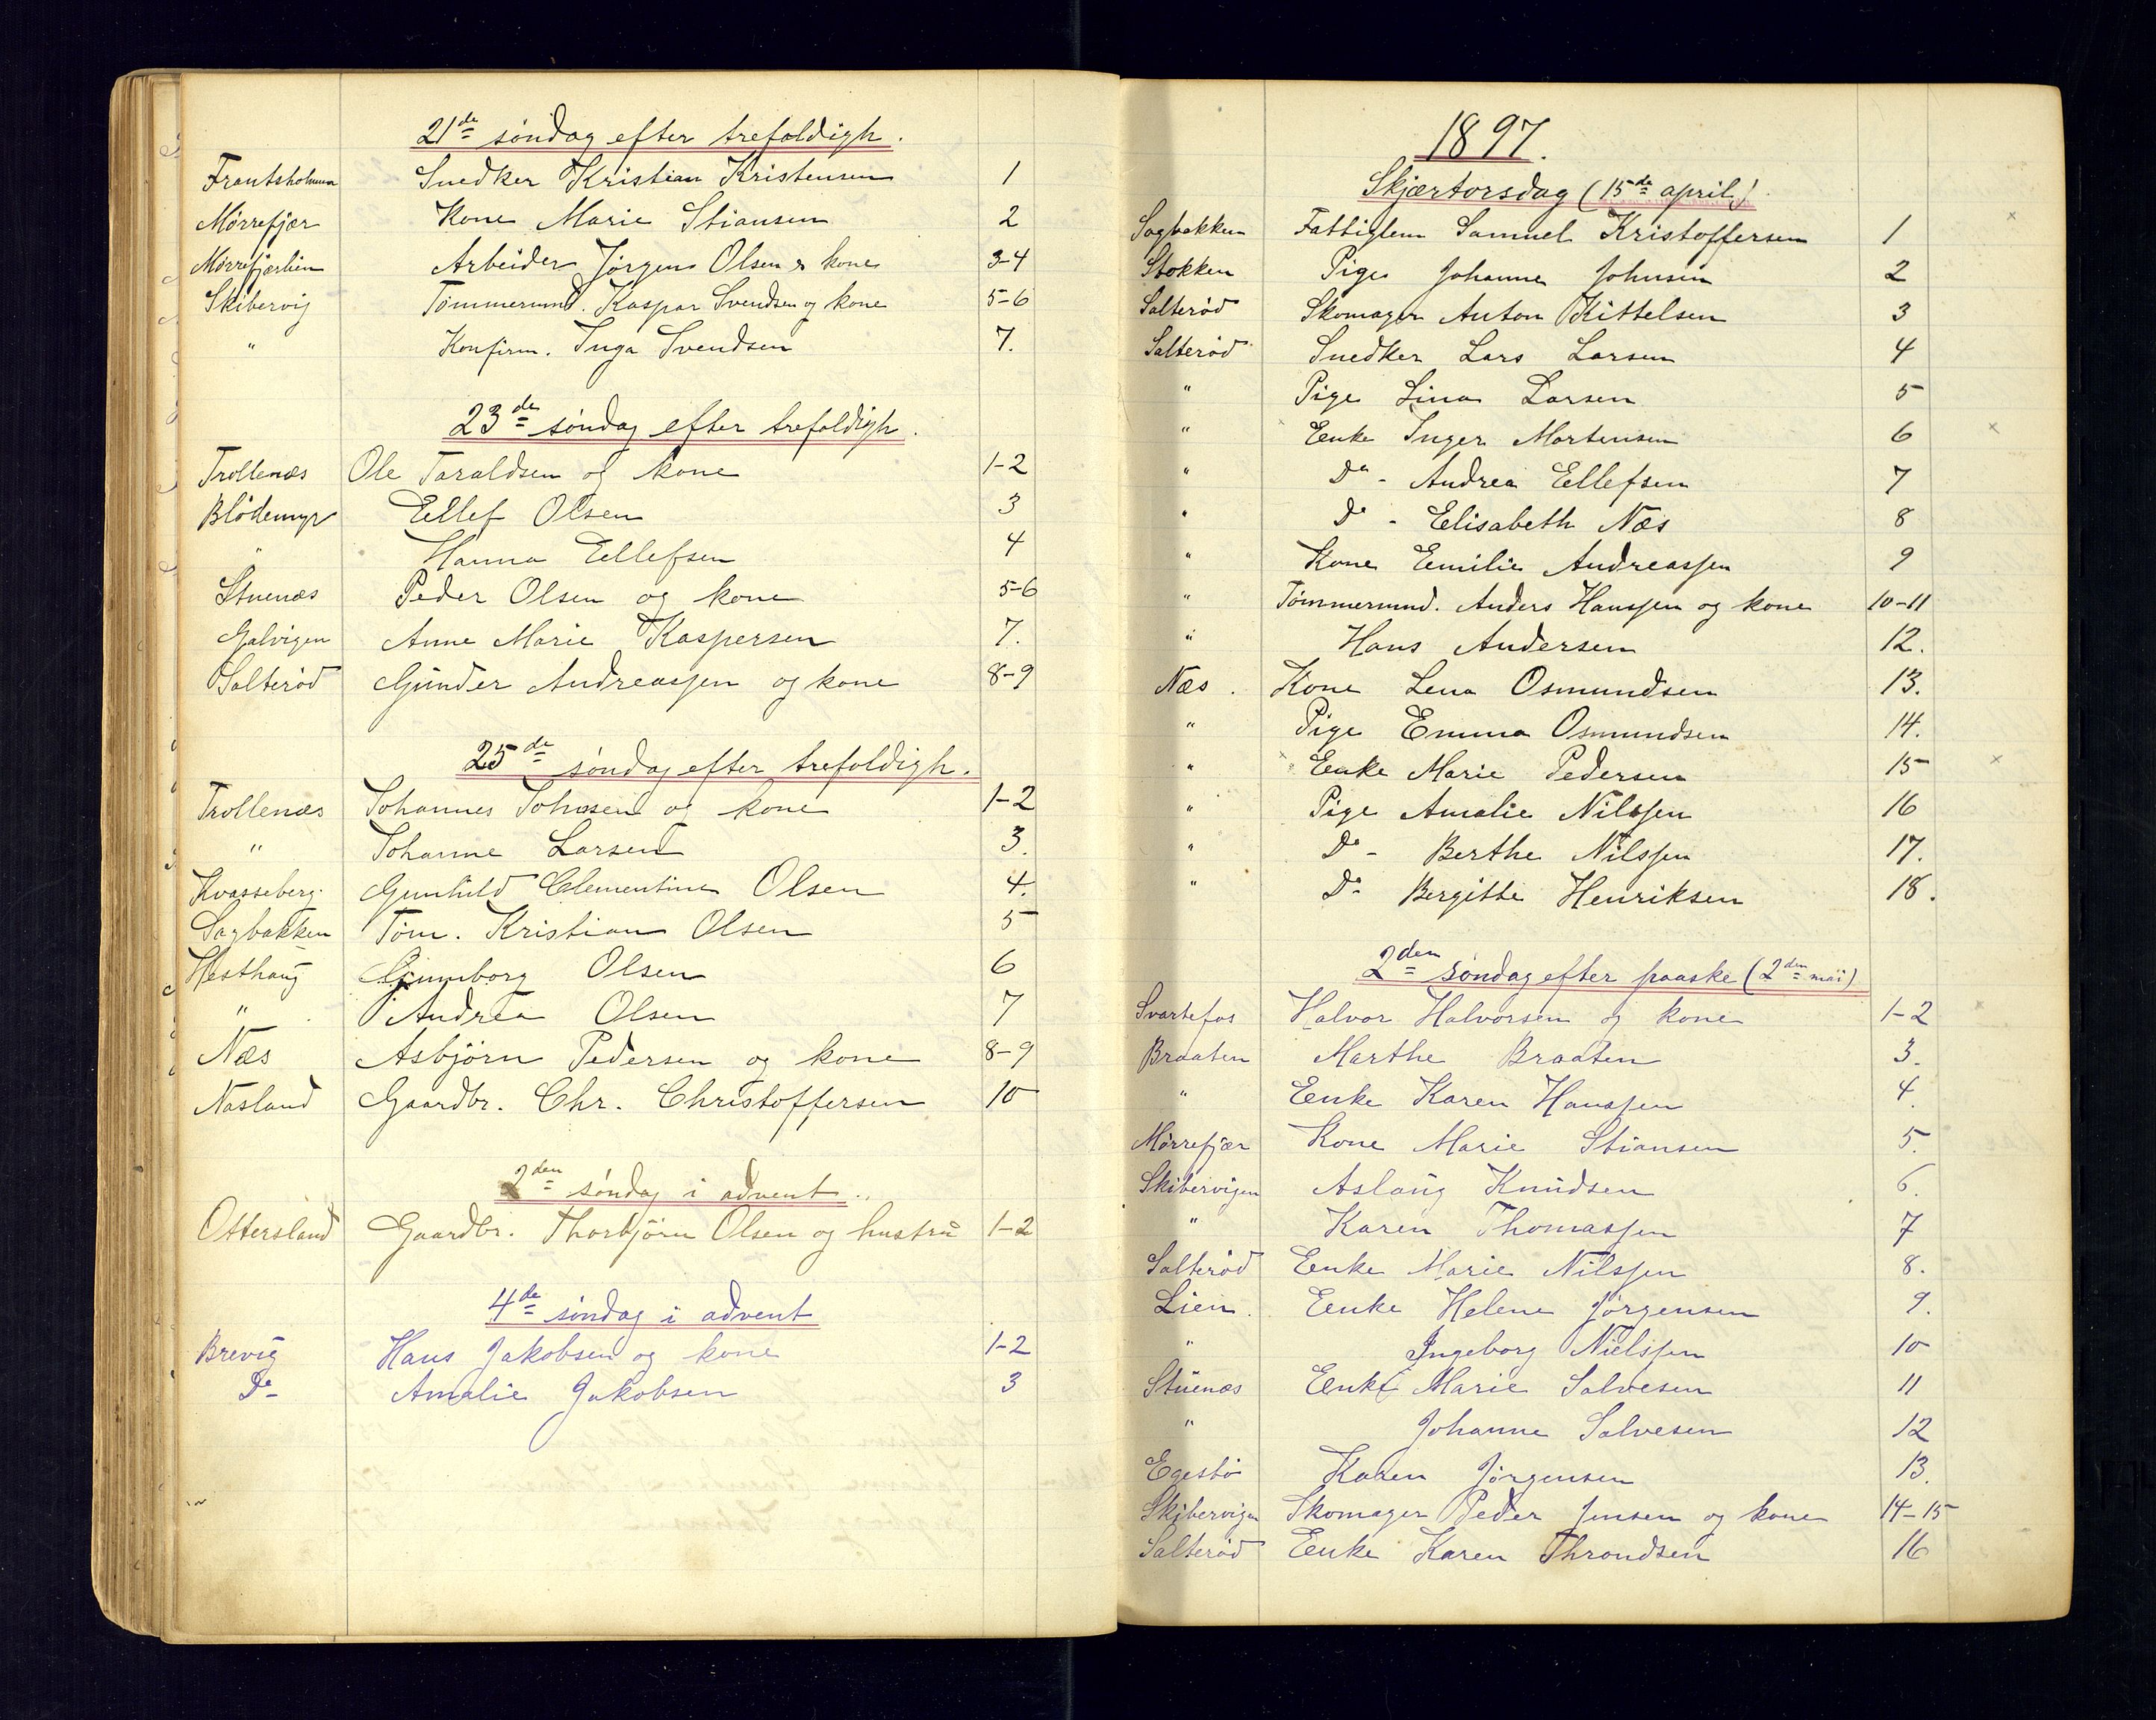 21de søndag efter trefoldigh.
Frantsholmen Snedker Kristian Kristensen 1
Mørrefjær Kone Marie Stiansen 2
Mørrefjærlien Arbeider Jørgen Olsen & kone 3-4
Skibervig Tømmermd. Kaspar Svendsen og kone 5-6
" Konfirm. Inga Svendsen 7.
23de søndag efter trefoldigh.
Trollenæs Ole Taraldsen og kone 1-2
Blødemyr Ellef Olsen 3
" Hanna Ellefsen 4
Stuenæs Peder Olsen og kone 5-6
Galvigen Anne Marie Kaspersen 7.
Salterød Gunder Andreassen og kone 8-9
25de søndag efter trefoldigh.
Trollenæs Johannes Johnsen og kone 1-2
" Johanne Larsen 3.
Kvasseberg Gunhild Clementine Olsen 4.
Sagbakken Tøm. Kristian Olsen 5
Hesthaug Gunnborg Olsen 6
" Andrea Olsen 7
Næs Asbjørn Pedersen og kone 8-9
Nasland Gaardbr. Chr. Christoffersen 10
2den søndag i advent.
Ottersland Gaardbr. Thorbjørn Olsen og hustru 1-2
4de søndag i advent
Brevig Hans Jakobsen og kone 1-2
Do Amalie Jakobsen 3
1897.
Skjærtorsdag (15de april)
Sagbakken Fattiglem Samuel Kristoffersen 1
Stokken Pige Johanne Johnsen 2
Salterød Skomager Anton Kittelsen 3
Salterød Snedker Lars Larsen 4
" Pige Lina Larsen 5
" Enke Inger Mortensen 6
" Do - Andrea Ellefsen 7
" Do - Elisabeth Næs 8
" Kone Emilie Andreassen 9
" Tømmermnd. Anders Hanssen og kone 10-11
" Hans Andersen 12.
Næs. Kone Lena Osmundsen 13.
" Pige Emma Osmundsen 14.
" Enke Marie Pedersen 15
" Pige Amalie Nilssen 16
" Do - Berthe Nilssen 17.
" Do Bergitte Henriksen 18.
2den søndag efter paaske (2den mai)
Svartefos Halvor Halvorsen og kone 1-2
Braaten Marthe Braaten 3.
" Enke Karen Hanssen 4.
Mørrefjær Kone Marie Stiansen 5.
Skibervigen Aslaug Knudsen 6.
" Karen Thomassen 7
Salterød Enke Marie Nilssen 8.
Lien. Enke Helene Jørgensen 9.
" Ingeborg Nielssen 10
Stuenæs Enke Marie Salvesen 11
" Johanne Salvesen 12
Egestø Karen Jørgensen 13.
Skibervigen Skomager Peder Jensen og kone 14-15
Salterød Enke Karen Throndsen 16